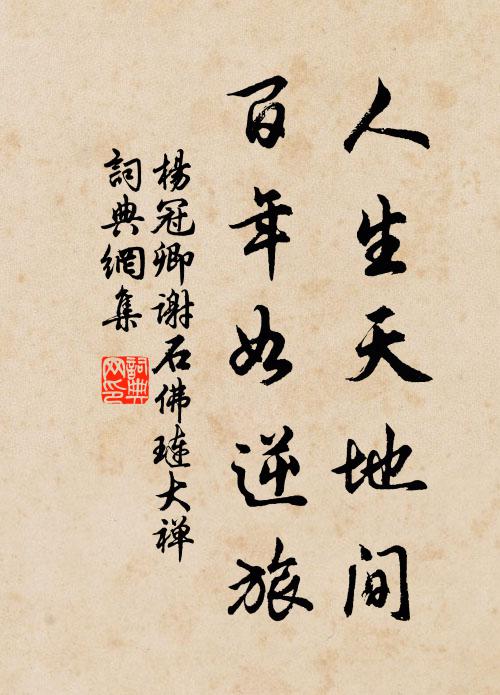 人生天地间
百年如逆旅
楊冠卿谢石佛璉大禅
詞典網集
詞典
网印